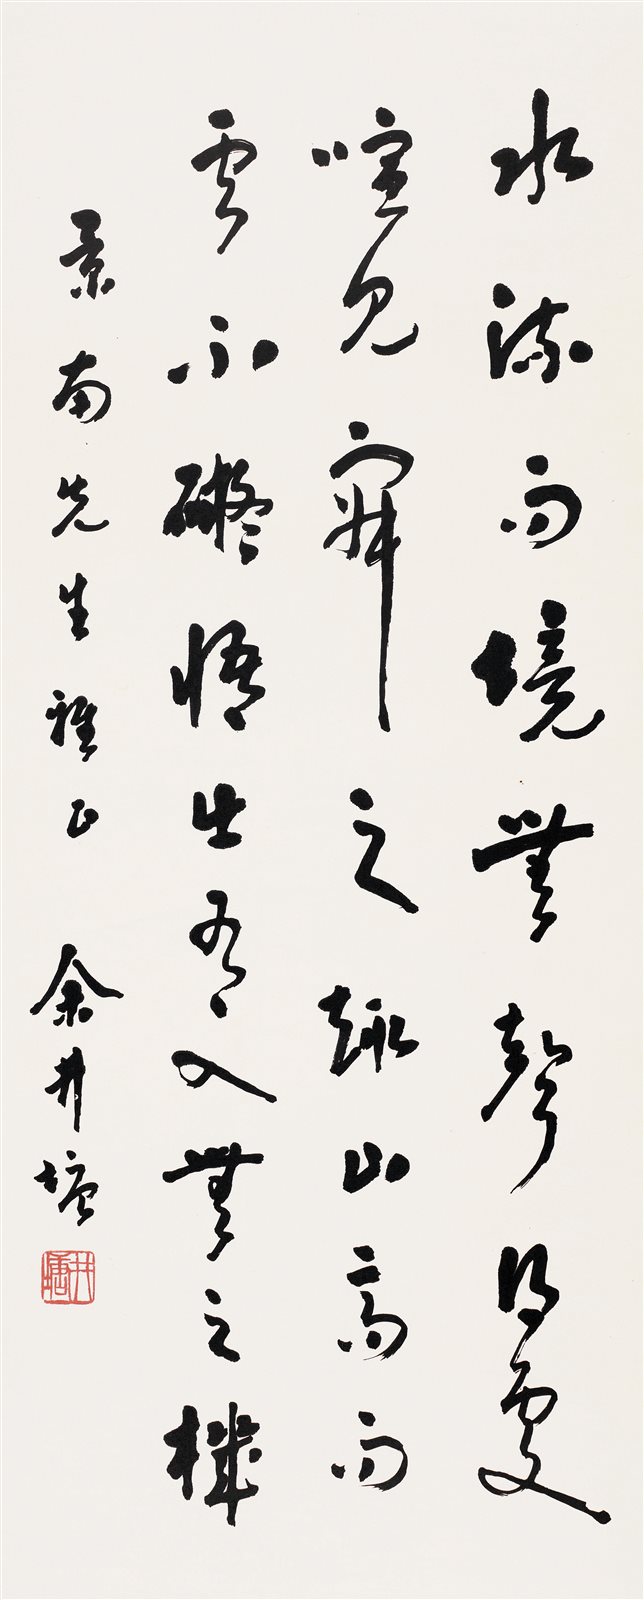 水流而境無聲得處
喧見寂之趣山高而
雲不礙悟出有入無之機
景南先生雅正 余井塘
井塘